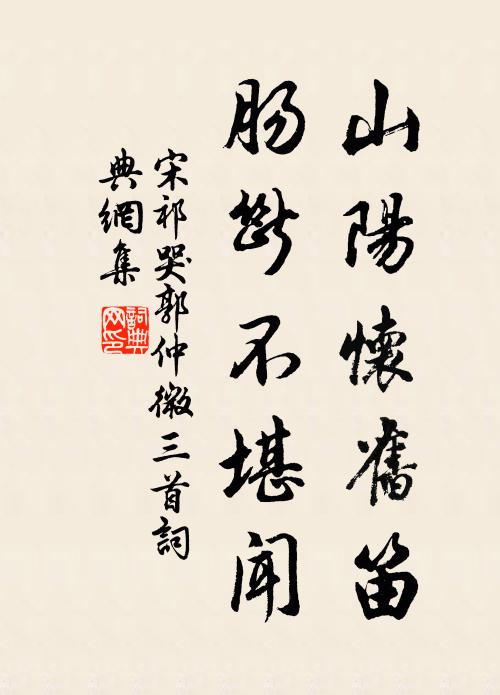 山陽懷舊笛
肠斷不堪闻
宋祁哭郭仲微三首詞
典網集
詞典网印